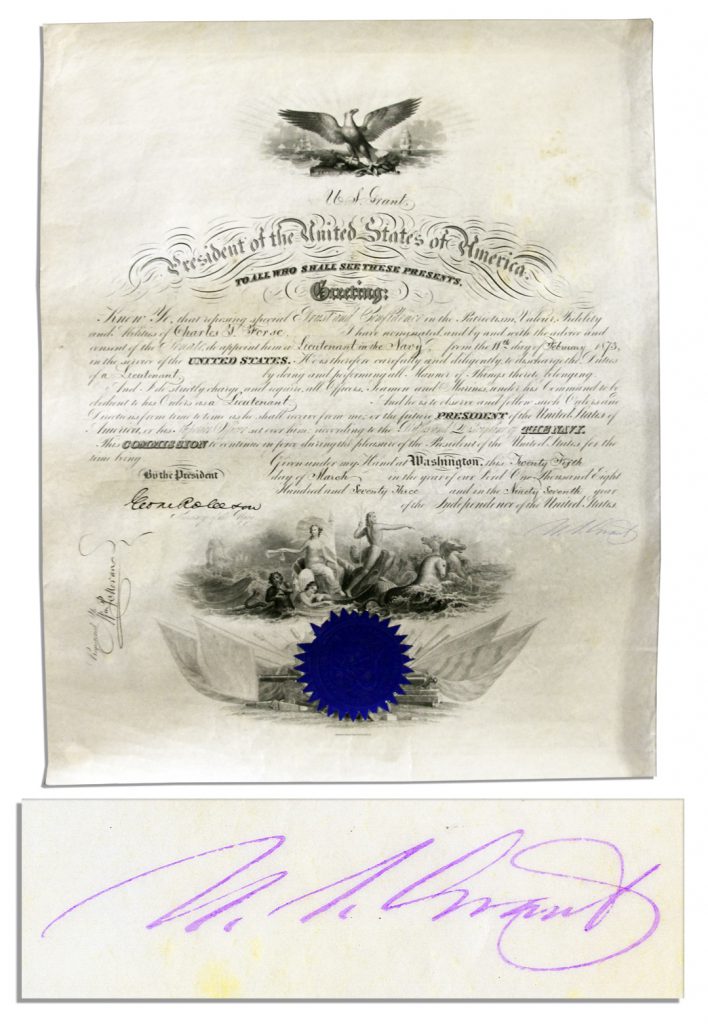 U. S. Grant
President of the United States of America.
TO ALL WHO SHALL SEE THESE PRESENTS,
Greeting:
Know Ye, that reposing special Trust and Confidence in the Patriotism, Valour, Fidelity
and Abilities of Charles I have nominated and by and with the advice and
consent of the Senate, do appoint him a Lieutenant in the Navy from the 11th day of February 1873,
in the service of the UNITED STATES. He is therefore carefully and diligently to discharge the Duties
of a Lieutenant by doing and performing all Manner of Things thereto belonging.
And I do strictly charge, and require all Officers, Seamen and Marines, under his Command to be
obedient to his Orders as a Lieutenant And he is to observe and follow such Orders and
Directions from time to time as he shall receive from me, or the future PRESIDENT of the United States of
America, or his Superior Officer set over him, according to the Discipline of THE NAVY.
This COMMISSION to continue in force during the pleasure of the President of the United States for the
time being.
Given under my Hand at Washington, this Twenty Fifth
By the President
day of March in the year of our Lord One Thousand Eight
Hundred and Seventy Three and in the Ninety Seventh year
of the Independence of the United States.
Geo M Robeson
U. S. Grant
Registered
U. S. Grant